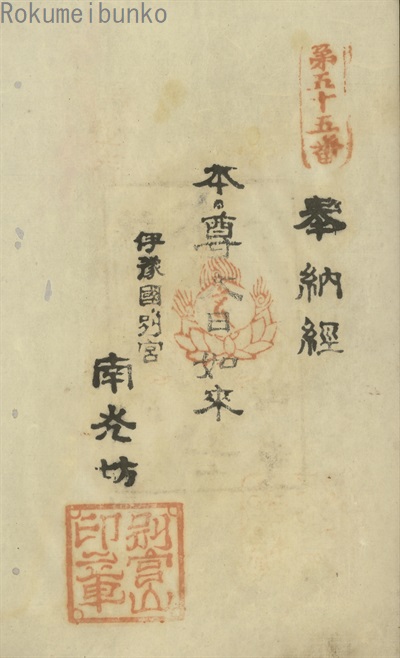 Rokumeibunko
第五十五番
奉納経
本尊大日如来
伊豫國別宮
南光坊
別宮山
印章